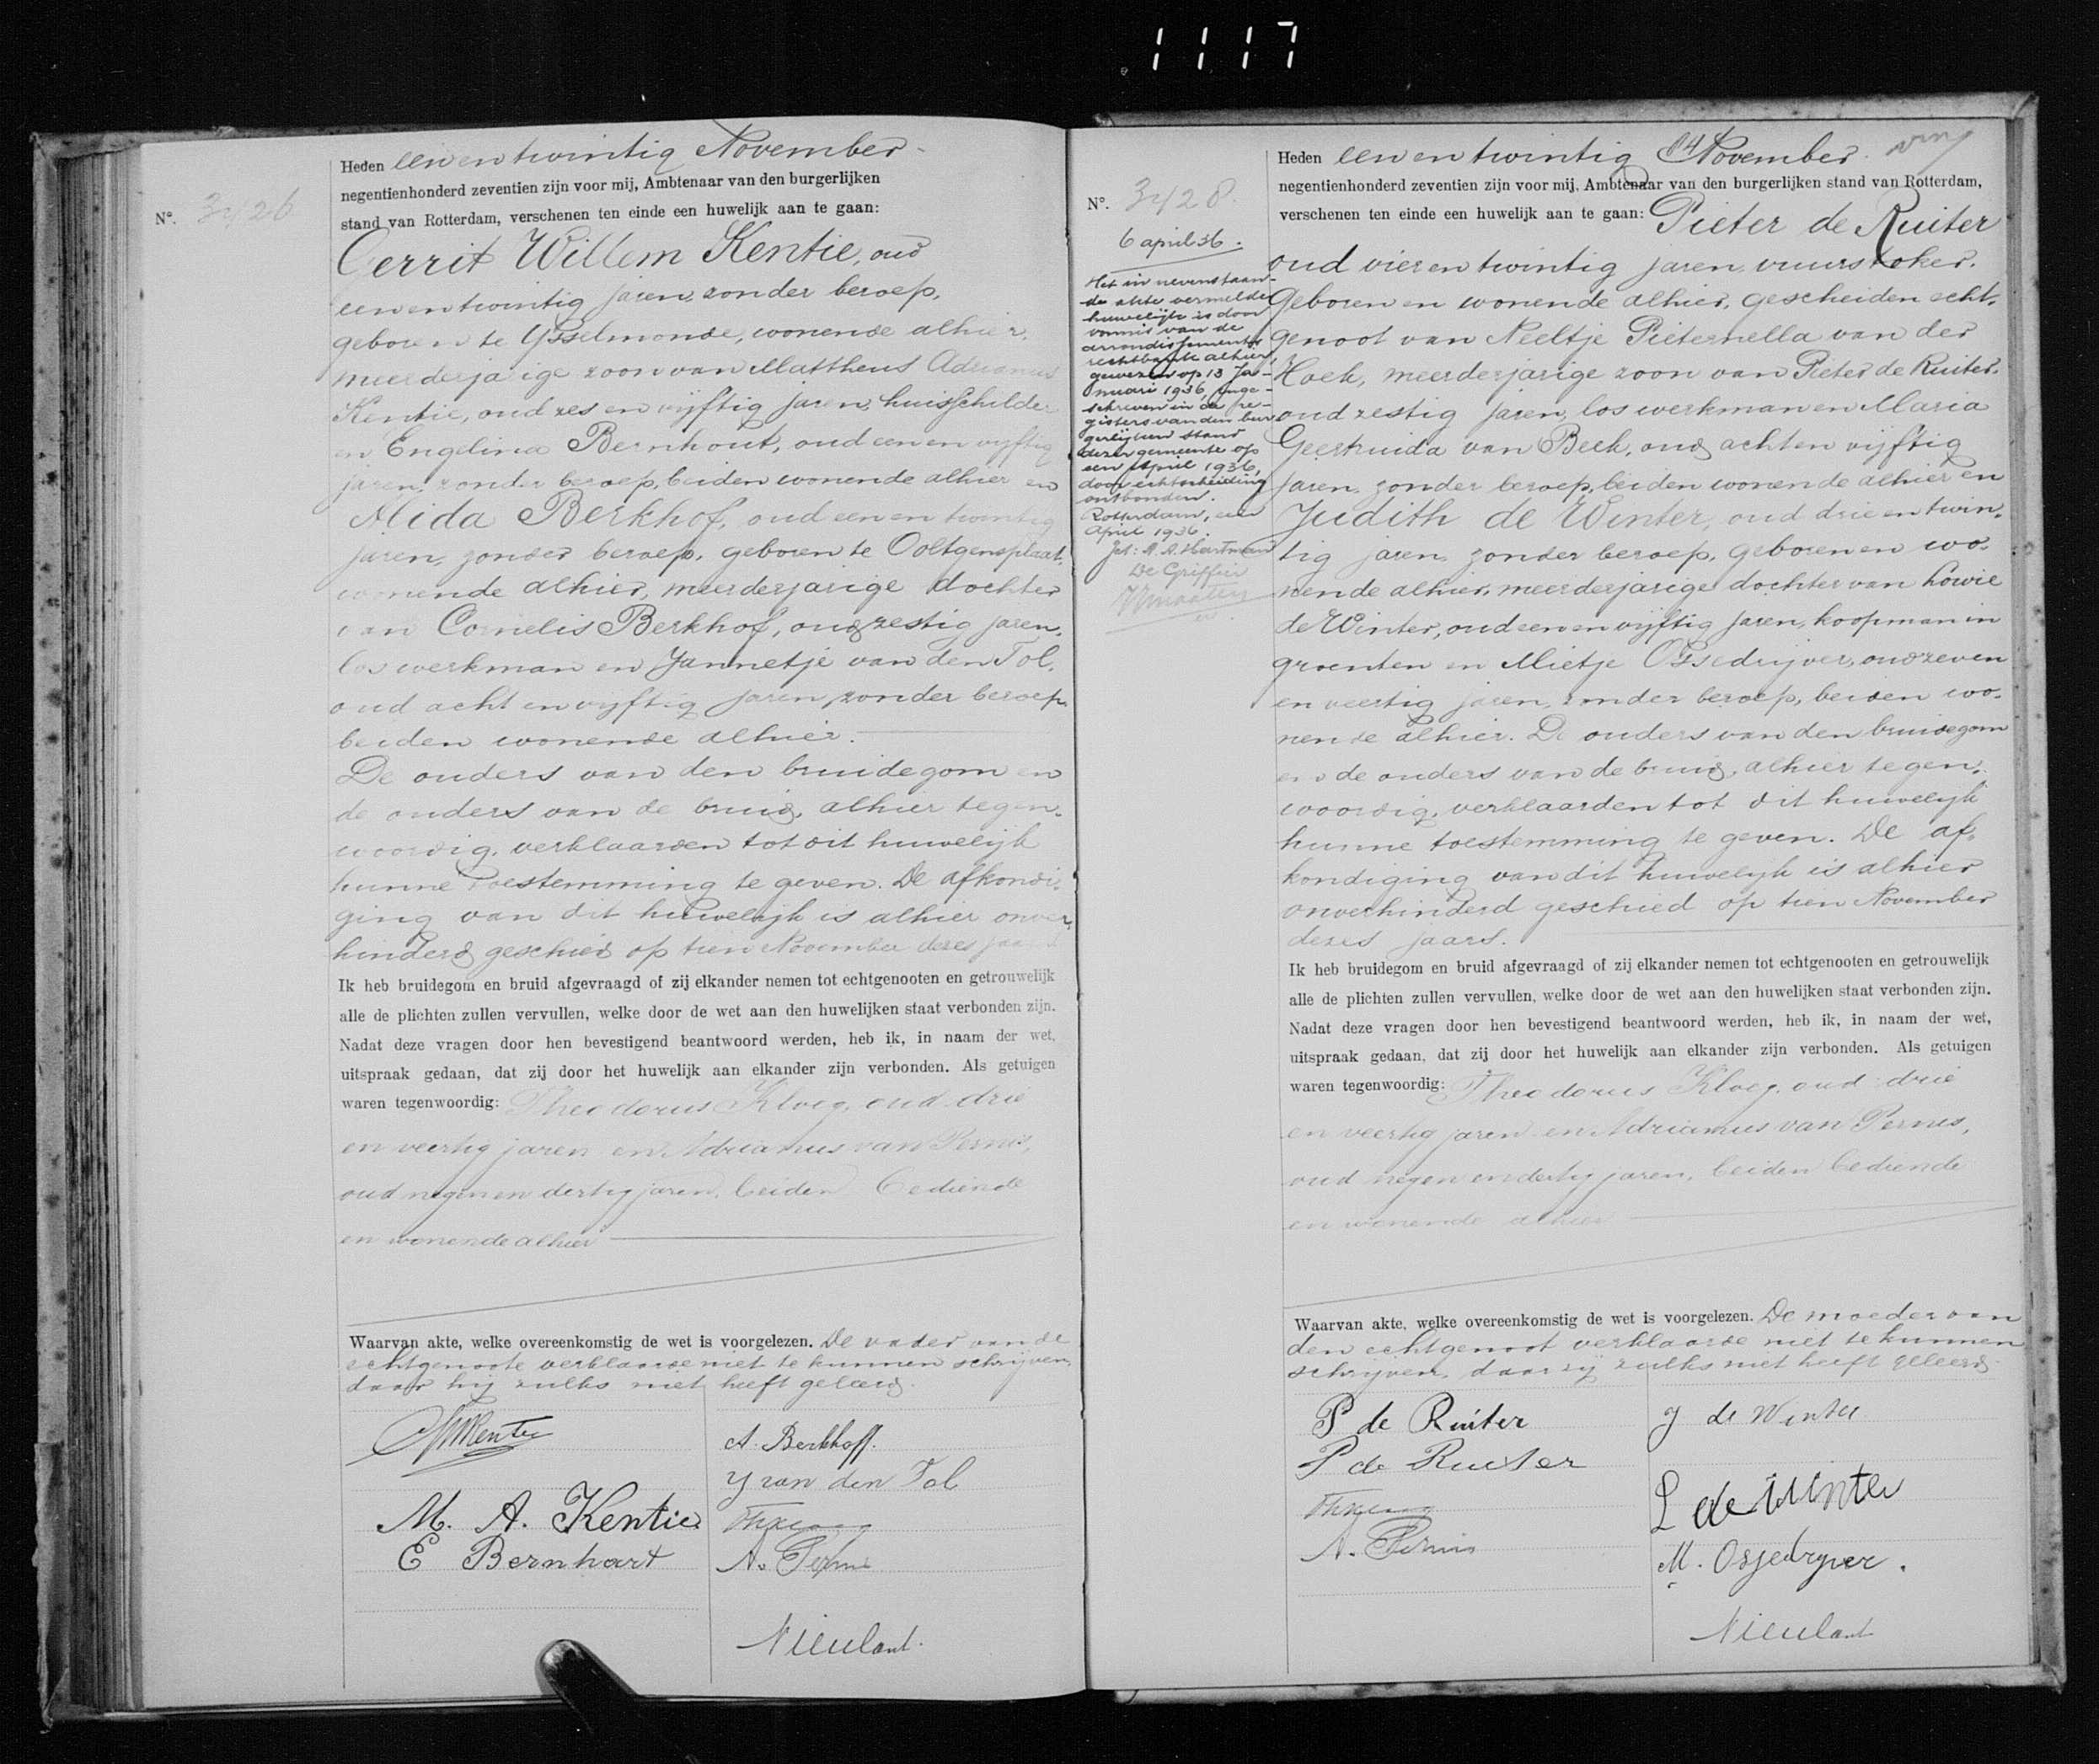 1117
Heden een en twintig November
negentienhonderd zeventien zijn voor mij, Ambtenaar van den burgerlijken
N°. 3426
stand van Rotterdam, verschenen ten einde een huwelijk aan te gaan:
Gerrit Willem Kentie, oud
een en twintig jaren, zonder beroep,
geboren te IJsselmonde, wonende alhier,
meerderjarige zoon van Mattheus Adrianus
Kentie, oud zes en vijftig jaren, huisschilder
en Engelina Bernhout, oud een en vijftig
jaren, zonder beroep, beiden wonende alhier en
Alida Berkhof, oud een en twintig
jaren, zonder beroep, geboren te Ooltgensplaat,
wonende alhier, meerderjarige dochter
van Cornelis Berkhof, oud zestig jaren,
los werkman en Jannetje van den Tol,
oud acht en vijftig jaren, zonder beroep,
beiden wonende alhier.
De ouders van den bruidegom en
de ouders van de bruid, alhier tegen-
woordig, verklaarden tot dit huwelijk
hunne toestemming te geven. De afkondi-
ging van dit huwelijk is alhier onver-
hinderd geschied op tien November dezes jaars
Ik heb bruidegom en bruid afgevraagd of zij elkander nemen tot echtgenooten en getrouwelijk
alle de plichten zullen vervullen, welke door de wet aan den huwelijken staat verbonden zijn.
Nadat deze vragen door hen bevestigend beantwoord werden, heb ik, in naam der wet,
uitspraak gedaan, dat zij door het huwelijk aan elkander zijn verbonden. Als getuigen
waren tegenwoordig: Theodorus Kloeg, oud drie
en veertig jaren en Adrianus van Pernis,
oud negen en dertig jaren, beiden bediende
en wonende alhier
Waarvan akte, welke overeenkomstig de wet is voorgelezen. De vader van de
echtgenoote verklaarde niet te kunnen schrijven,
daar hij zulks niet heeft geleerd.
GWKentie
M. A. Kentie
E Bernhart
A. Berkhoff.
J van den Tol
A. Pernis
Nieulant.
Heden een en twintig November.
negentienhonderd zeventien zijn voor mij, Ambtenaar van den burgerlijken stand van Rotterdam,
N°. 3428.
verschenen ten einde een huwelijk aan te gaan: Pieter de Ruiter
oud vier en twintig jaren, vuurstoker,
geboren en wonende alhier, gescheiden echt-
genoot van Neeltje Pieternella van der
Hoek, meerderjarige zoon van Pieter de Ruiter,
oud zestig jaren, los werkman en Maria
Geertruida van Beek, oud acht en vijftig
jaren, zonder beroep, beiden wonende alhier en
Judith de Winter, oud drie en twin-
tig jaren, zonder beroep, geboren en wo-
nende alhier, meerderjarige dochter van Louie
de Winter, oud een en vijftig jaren, koopman in
groenten en Mietje Ossedrijver, oud zeven
en veertig jaren, zonder beroep, beiden wo-
nende alhier. De ouders van den bruidegom
en de ouders van de bruid, alhier tegen-
woordig, verklaarden tot dit huwelijk
hunne toestemming te geven. De af-
kondiging van dit huwelijk is alhier
onverhinderd geschied op tien November
dezes jaars.
Ik heb bruidegom en bruid afgevraagd of zij elkander nemen tot echtgenooten en getrouwelijk
alle de plichten zullen vervullen, welke door de wet aan den huwelijken staat verbonden zijn.
Nadat deze vragen door hen bevestigend beantwoord werden, heb ik, in naam der wet,
uitspraak gedaan, dat zij door het huwelijk aan elkander zijn verbonden. Als getuigen
waren tegenwoordig: Theodorus Kloeg, oud drie
en veertig jaren en Adrianus van Pernis,
oud negen en dertig jaren, beiden bediende
en wonende alhier
Waarvan akte, welke overeenkomstig de wet is voorgelezen. De moeder van
den echtgenoot verklaarde niet te kunnen
schrijven, daar zij zulks niet heeft geleerd
P de Ruiter
P de Ruiter
A. Pernis
J de Winter
L de Winter
M. Ossedryver.
Nieulant
6 april 36.
Het in nevenstaan-
de akte vermelde
huwelijk is door
vonnis van de
arrondissements
rechtbank alhier,
gewezen op 13 Ja-
nuari 1936, inge-
schreven in de re-
gisters van den bur
gerlijken stand
dezer gemeente op
een April 1936,
door echtscheiding
ontbonden.
Rotterdam, een
April 1936.
Get: A. A. Hartman
De Griffier